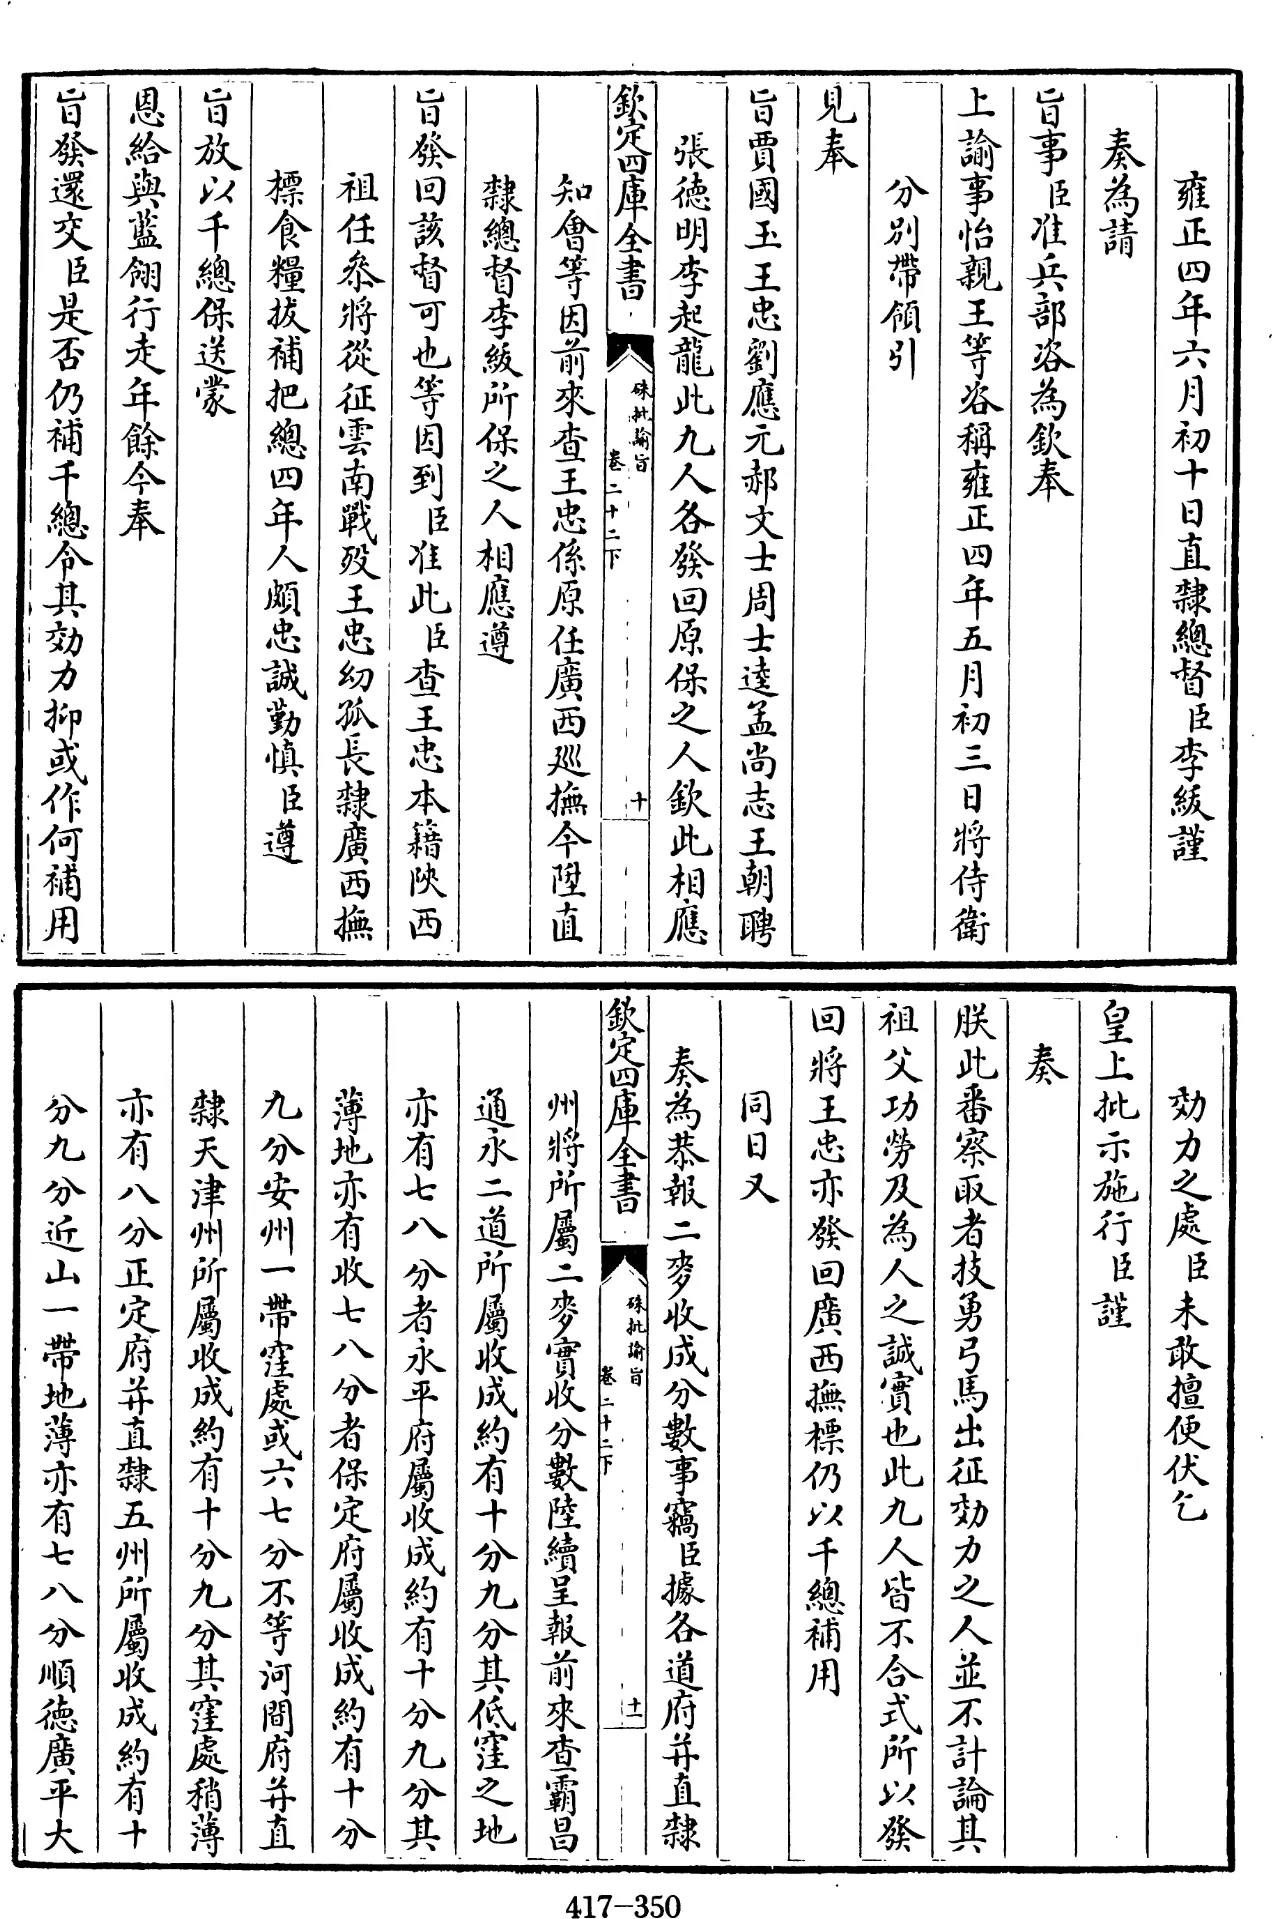 雍正四年六月初十日直隸總督臣李紱謹
奏為請
旨事臣准兵部咨為欽奉
上諭事怡親王等咨稱雍正四年五月初三日將侍衛
分別帶領引
見奉
旨賈國玉王忠劉應元郝文士周士逵孟尚志王朝聘
張德明李起龍此九人各發回原保之人欽此相應
欽定四庫全書
硃批諭旨
卷二十二下
十
知會等因前來查王忠係原任廣西廵撫今陞直
隸總督李紱所保之人相應遵
旨發回該督可也等因到臣准此臣查王忠本籍陝西
祖任叅將從征雲南戰歿王忠幼孤長隸廣西撫
標食糧拔補把總四年人頗忠誠勤慎臣遵
旨放以千總保送蒙
恩給與藍翎行走年餘今奉
旨發還交臣是否仍補千總令其効力抑或作何補用
効力之處臣未敢擅便伏乞
皇上批示施行臣謹
奏
朕此番察取者技勇弓馬出征効力之人並不計論其
祖父功勞及為人之誠實也此九人皆不合式所以發
回將王忠亦發回廣西撫標仍以千總補用
同日又
奏為恭報二麥收成分數事竊臣據各道府并直隸
欽定四庫全書
硃批諭旨
卷二十二下
十一
州將所屬二麥實收分數陸續呈報前來查霸昌
通永二道所屬收成約有十分九分其低窪之地
亦有七八分者永平府屬收成約有十分九分其
薄地亦有收七八分者保定府屬收成約有十分
九分安州一帶窪處或六七分不等河間府并直
隸天津州所屬收成約有十分九分其窪處稍薄
亦有八分正定府并直隸五州所屬收成約有十
分九分近山一帶地薄亦有七八分順德廣平大
417-350